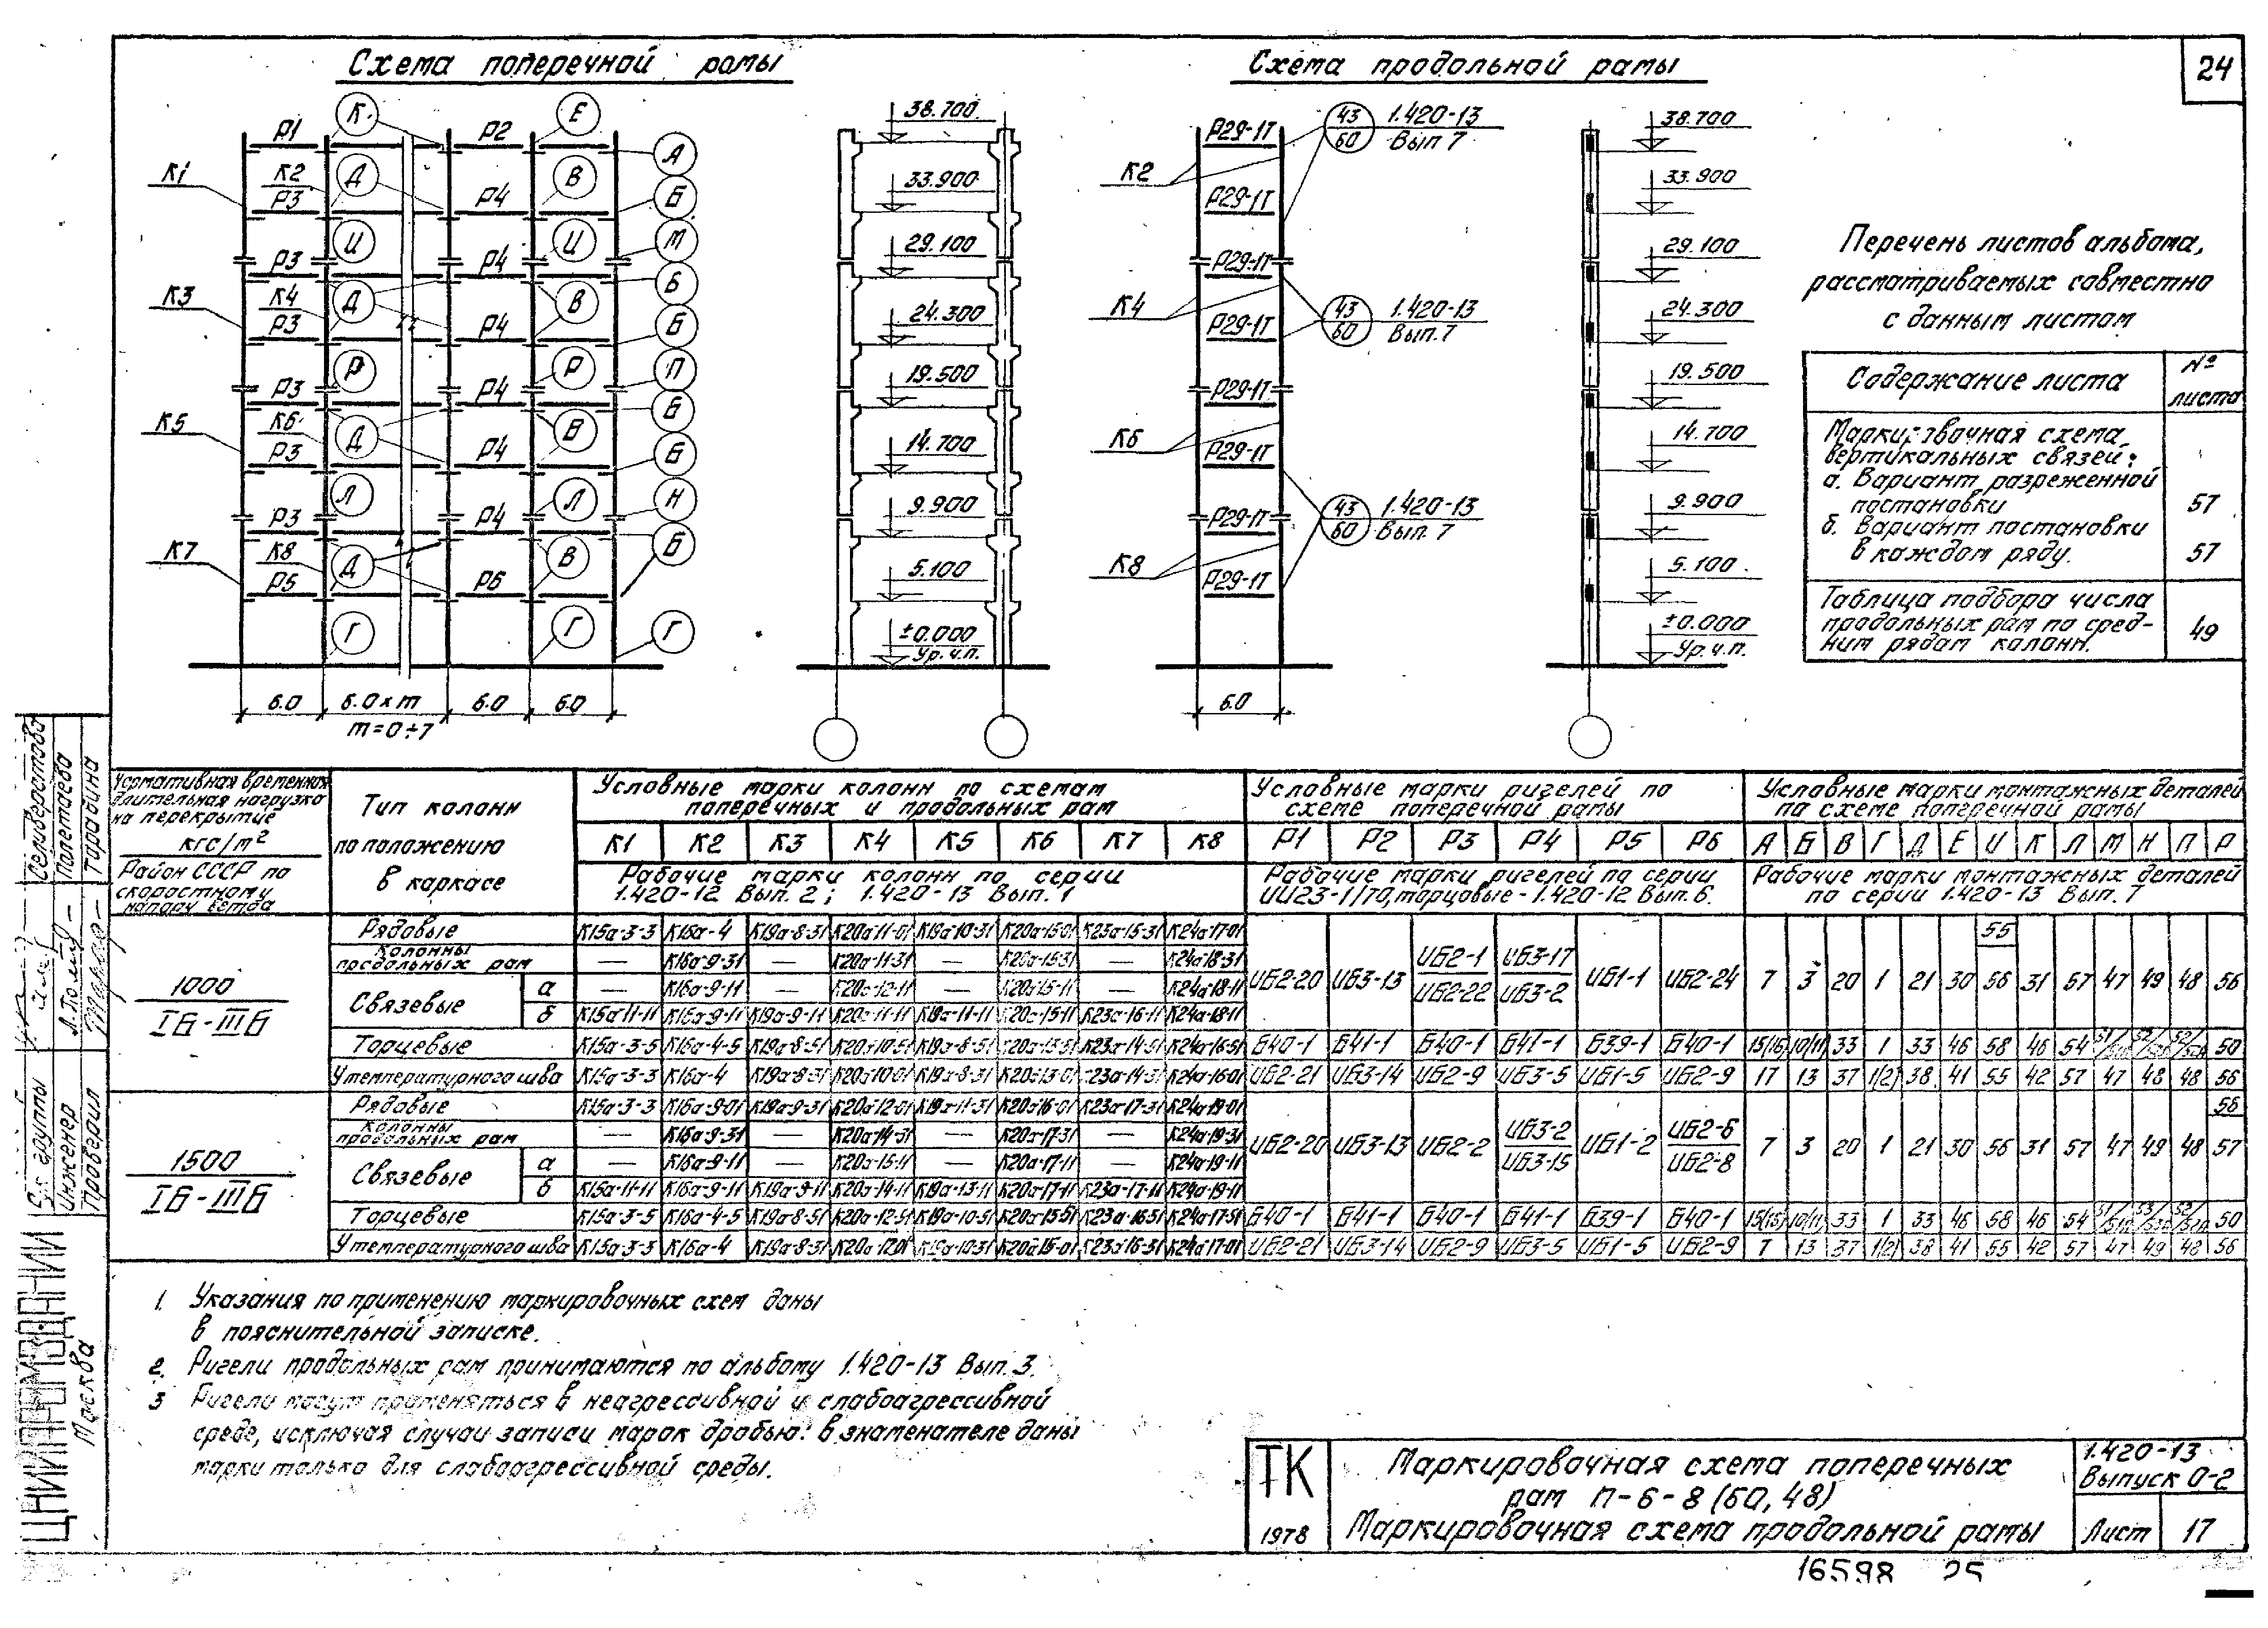 24
Схема поперечной рамы
Схема продольной рамы
Р1 К Р2 Е
К1 К2 Д В А
Р3 Р4 Б
И И М
Р3 Р4
К3 К4 Д В Б
Р3 Р4 Б
Р Р П
Р3 Р4 Б
К5 К6 Д В
Р3 Р4 Б
Л Л Н
Р3 Р4
К7 К8 Д В Б
Р5 Р6
Г Г Г
6.0 6.0 х m 6.0 6.0
m=0÷7
38.700
33.900
29.100
24.300
19.500
14.700
9.900
5.100
±0.000
Ур.ч.п.
Р29-1Т
К2
Р29-1Т
Р29-1Т
К4
Р29-1Т
Р29-1Т
К6
Р29-1Т
Р29-1Т
К8
Р29-1Т
6.0
43 1.420-13
60 Вып 7
43 1.420-13
60 Вып.7
43 1.420-13
60 Вып. 7
38.700
33.900
29.100
24.300
19.500
14.700
9.900
5.100
±0.000
Ур.ч.п.
Перечень листов альбома,
рассматриваемых совместно
с данным листом
Содержание листа № листа
Маркировочная схема
вертикальных связей:
а. Вариант разреженной
постановки 57
б. Вариант постановки
в каждом ряду. 57
Таблица подбора числа
продольных рам по сред-
ним рядам колонн. 49
Нормативная временная
длительная нагрузка
на перекрытие
кгс/м²
Район СССР по
скоростному
напору ветра
Тип колонн
по положению
в каркасе
Условные марки колонн по схемам
поперечных и продольных рам
К1 К2 К3 К4 К5 К6 К7 К8
Рабочие марки колонн по серии
1.420-12 Вып. 2; 1.420-13 Вып. 1
Условные марки ригелей по
схеме поперечной рамы
Р1 Р2 Р3 Р4 Р5 Р6
Рабочие марки ригелей по серии
ИИ23-1/70, торцовые - 1.420-12 Вып. 6.
Условные марки монтажных деталей
по схеме поперечной рамы
А Б В Г Д Е И К Л М Н П Р
Рабочие марки монтажных деталей
по серии 1.420-13 Вып. 7
1000
Iб-IIIб
Рядовые К15а-3-3 К16а-4 К19а-8-31 К20а-11-01 К19а-10-31 К20а-15-01 К23а-15-31 К24а-17-01
Колонны
продольных рам — К16а-9-31 — К20а-11-31 — К20а-15-31 — К24а-18-31
Связевые а — К16а-9-11 — К20а-12-11 — К20а-15-11 — К24а-18-11
б К15а-11-11 К16а-9-11 К19а-9-11 К20а-11-11 К19а-11-11 К20а-15-11 К23а-16-11 К24а-18-11
ИБ2-20 ИБ3-13 ИБ2-1 ИБ2-22 ИБ3-17 ИБ3-2 ИБ1-1 ИБ2-24 7 3 20 1 21 30 55 56 31 57 47 49 48 56
Торцевые К15а-3-5 К16а-4-5 К19а-8-51 К20а-10-51 К19а-8-51 К20а-13-51 К23а-14-51 К24а-16-51 Б40-1 Б41-1 Б40-1 Б41-1 Б39-1 Б40-1 15(16) 10(11) 33 1 33 46 58 46 54 50
У температурного шва К15а-3-3 К16а-4 К19а-8-31 К20а-10-01 К19а-8-31 К20а-13-01 К23а-14-31 К24а-16-01 ИБ2-21 ИБ3-14 ИБ2-9 ИБ3-5 ИБ1-5 ИБ2-9 17 13 37 1(2) 38 41 55 42 57 47 48 48 56
1500
Iб-IIIб
Рядовые К15а-3-3 К16а-9-01 К19а-9-31 К20а-12-01 К19а-11-31 К20а-16-01 К23а-17-31 К24а-19-01
Колонны
продольных рам — К16а-9-31 — К20а-14-31 — К20а-17-31 — К24а-19-31
Связевые а — К16а-9-11 — К20а-15-11 — К20а-17-11 — К24а-19-11
б К15а-11-11 К16а-9-11 К19а-9-11 К20а-14-11 К19а-13-11 К20а-17-11 К23а-17-11 К24а-19-11
ИБ2-20 ИБ3-13 ИБ2-2 ИБ3-2 ИБ3-15 ИБ1-2 ИБ2-6 ИБ2-8 7 3 20 1 21 30 56 31 57 47 49 48 56 57
Торцевые К15а-3-5 К16а-4-5 К19а-8-51 К20а-12-51 К19а-10-51 К20а-15-51 К23а-16-51 К24а-17-51 Б40-1 Б41-1 Б40-1 Б41-1 Б39-1 Б40-1 10(11) 33 1 33 46 58 46 54 50
У температурного шва К15а-3-3 К16а-4 К19а-8-31 К20а-12-01 К19а-10-31 К20а-15-01 К23а-16-31 К24а-17-01 ИБ2-21 ИБ3-14 ИБ2-9 ИБ3-5 ИБ1-5 ИБ2-9 7 13 37 1(2) 38 41 55 42 57 47 49 48 56
1. Указания по применению маркировочных схем даны
в пояснительной записке.
2. Ригели продольных рам принимаются по альбому 1.420-13 Вып. 3.
3 Ригели могут применяться в неагрессивной и слабоагрессивной
среде, исключая случаи записи марок дробью: в знаменателе даны
марки только для слабоагрессивной среды.
ТК
1978
Маркировочная схема поперечных
рам П-6-8 (60, 48)
Маркировочная схема продольной рамы
1.420-13
Выпуск 0-2
Лист 17
16598 25
Селиверстова
Полетаева
Тарабина
группы
Инженер
Проверил
ЦНИИПРОМЗДАНИЙ
Москва